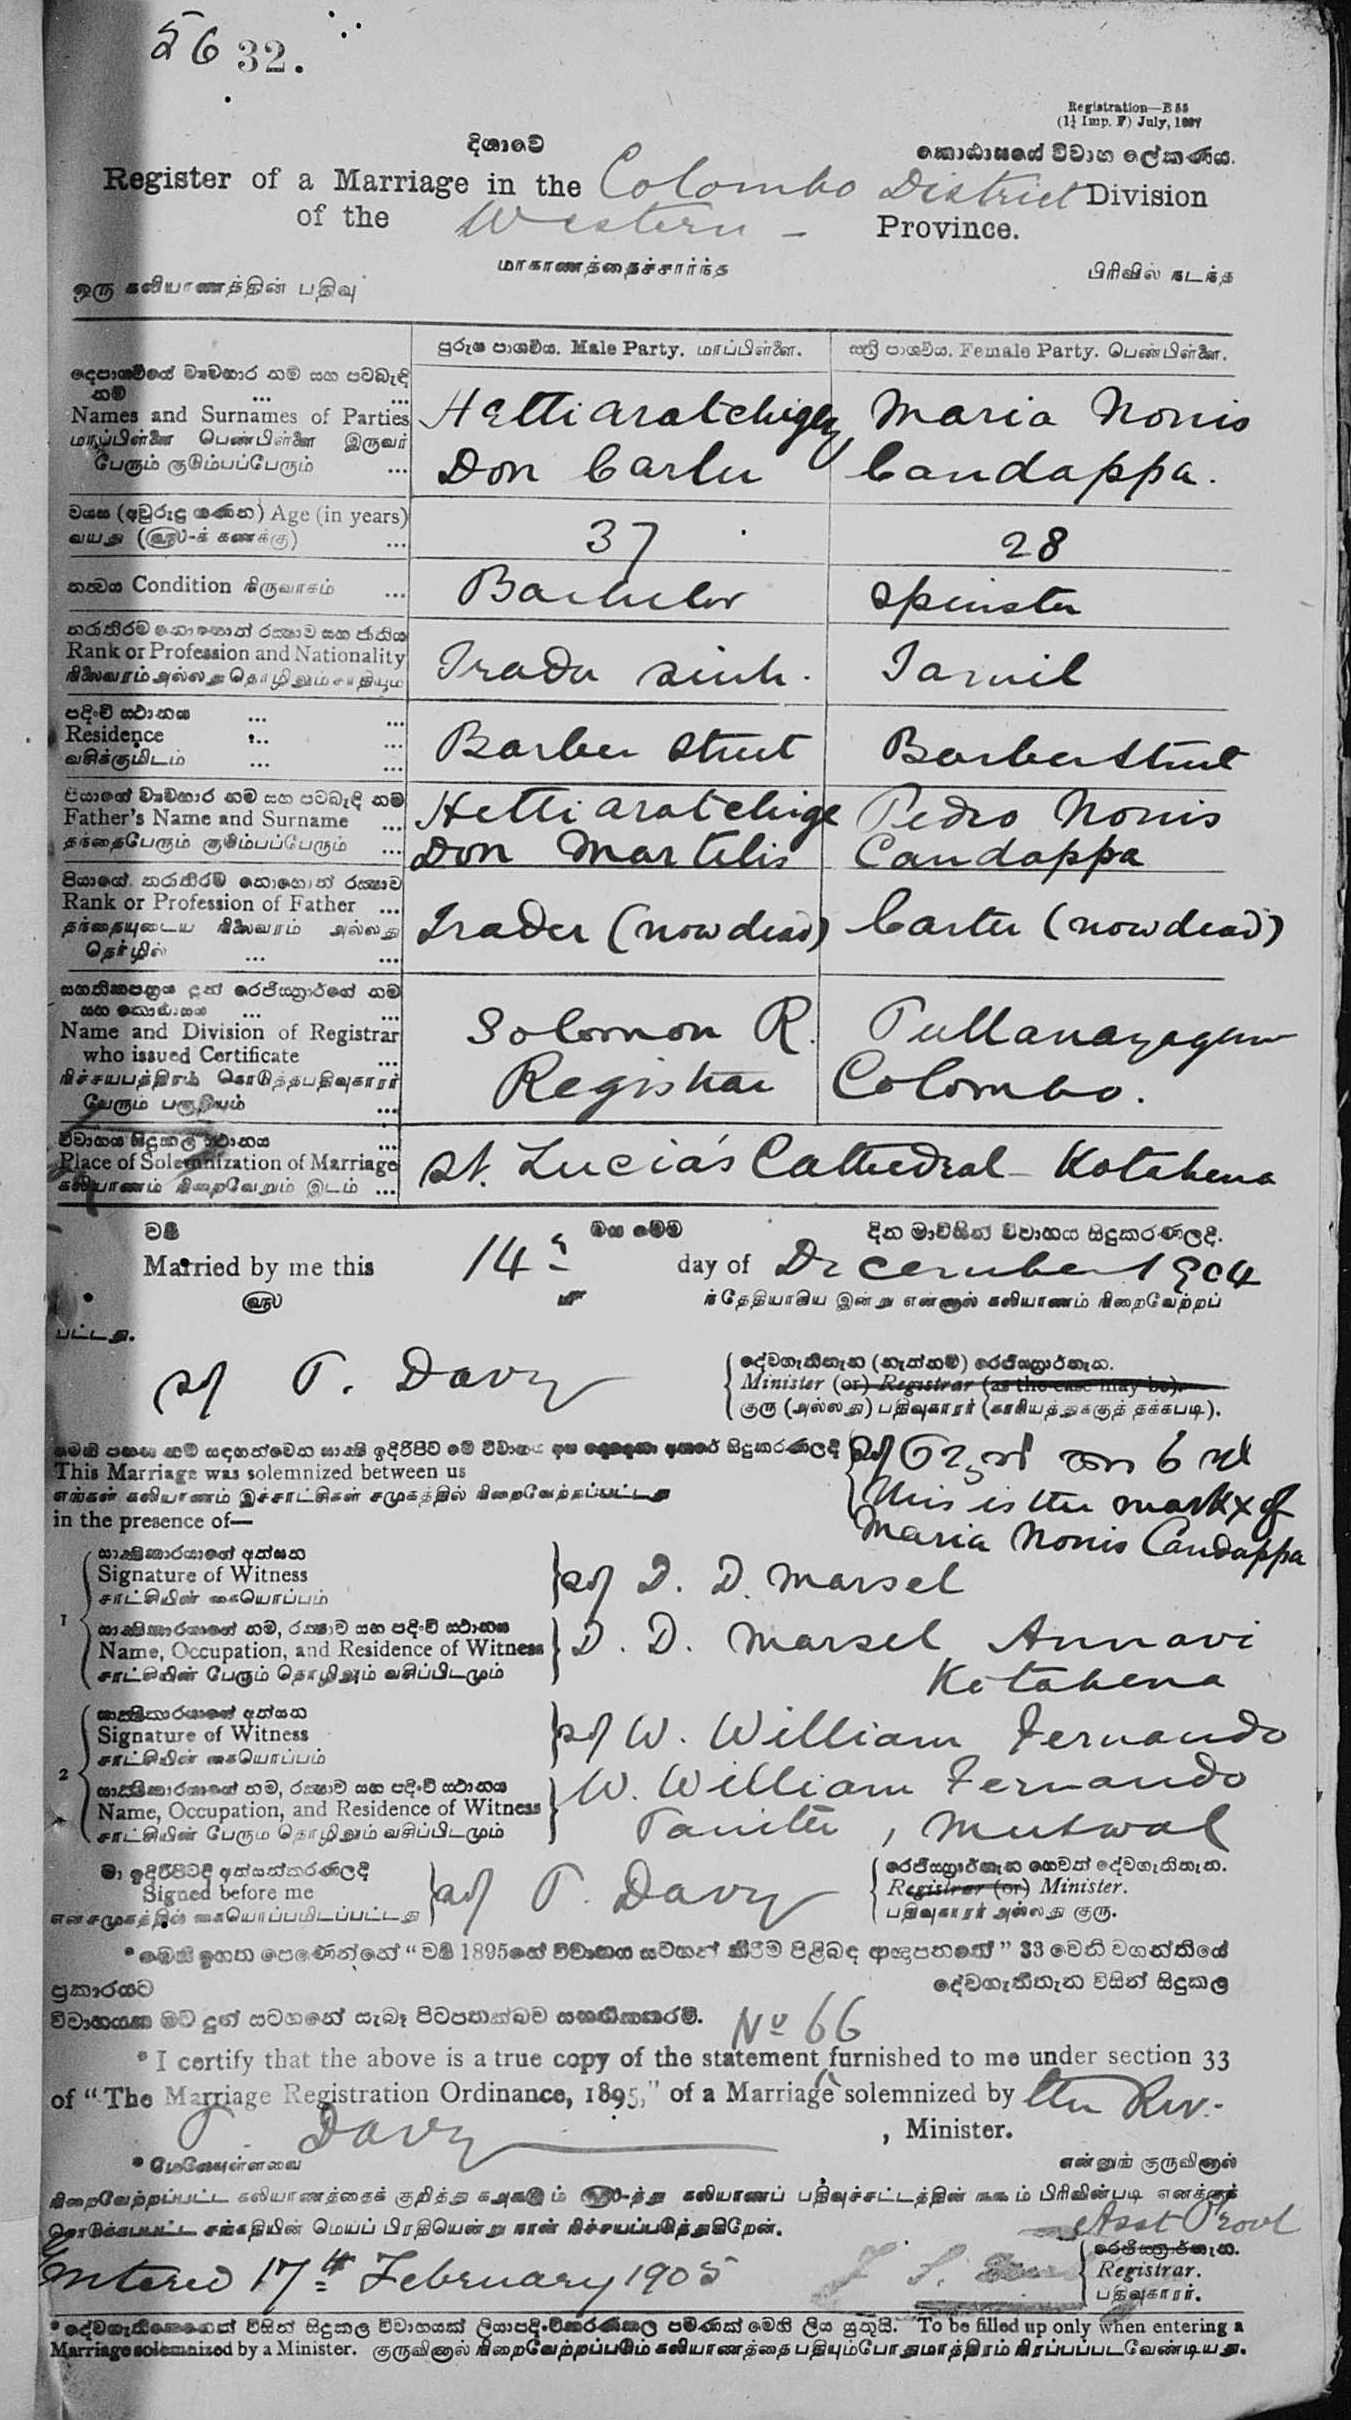 56 32.
Registration—B 55
(1½ Imp. F) July, 1897
දිශාවේ කොඨාසයේ විවාහ ලේකණය.
Register of a Marriage in the Colombo District Division
of the Western - Province.
மாகாணத்தைச்சார்ந்த பிரிவில் நடந்த
ஒரு கலியாணத்தின் பதிவு
පුරුෂ පාශවීය. Male Party. மாப்பிள்ளை. ස්ත්‍රී පාශවීය. Female Party. பெண்பிள்ளை.
Names and Surnames of Parties
மாப்பிள்ளை பெண்பிள்ளை இருவர்
பேரும் குடும்பப்பேரும் ...
Hettiaratchige Maria Nonis
Don Carlu Candappa.
වයස (අවුරුදු ගණන) Age (in years)
வயது (௵-க் கணக்கு) ...
37 28
තත්වය Condition நிருவாகம் ...
Bachelor Spinster
Rank or Profession and Nationality
நிலைவரம் அல்லது தொழிலும் சாதியும்
Trader Sinh. Tamil
පදිංචි ස්ථානය ... ...
Residence ... ...
வசிக்குமிடம் ... ...
Barber Street Barber Street
පියාගේ ව්‍යවහාර නම සහ පටබැඳි නම
Father's Name and Surname ...
தந்தைபேரும் குடும்பப்பேரும் ...
Hettiaratchige Pedro Nonis
Don Martelis Candappa
Rank or Profession of Father ...
தந்தையுடைய நிலைவரம் அல்லது
தொழில் ... ...
Trader (now dead) Carter (now dead)
Name and Division of Registrar
who issued Certificate ...
நிச்சயபத்திரம் கொடுத்தபதிவுகாரர்
பேரும் பகுதியும் ...
Solomon R. Pullanayagam
Registrar Colombo.
විවාහය සිදුකල ස්ථානය ...
Place of Solemnization of Marriage
கலியாணம் நிறைவேறும் இடம் ...
St. Lucia's Cathedral - Kotahena
වම් මස මෙම දින මාවිසින් විවාහය සිදුකරණලදි.
Married by me this 14th day of December 1904
௵ ௴ ந்தேதியாகிய இன்று என்னால் கலியாணம் நிறைவேற்றப்
பட்டது.
Minister (or) Registrar (as the case may be).
குரு (அல்லது) பதிவுகாரர் (காரியத்துக்குத் தக்கபடி).
sd/ P. Davy
This Marriage was solemnized between us
எங்கள் கலியாணம் இச்சாட்சிகள் சமுகத்தில் நிறைவேற்றப்பட்டது
in the presence of—
This is the mark x of
Maria Nonis Candappa
1
සාක්ෂිකාරයාගේ අත්සන
Signature of Witness
சாட்சியின் கையொப்பம்
sd/ D. D. Marsel
සාක්ෂිකාරයාගේ නම, රක්ෂාව සහ පදිංචි ස්ථානය
Name, Occupation, and Residence of Witness
சாட்சியின் பேரும் தொழிலும் வசிப்பிடமும்
D. D. Marsel Annavi
Kotahena
2
සාක්ෂිකාරයාගේ අත්සන
Signature of Witness
சாட்சியின் கையொப்பம்
sd/ W. William Fernando
සාක්ෂිකාරයාගේ නම, රක්ෂාව සහ පදිංචි ස්ථානය
Name, Occupation, and Residence of Witness
சாட்சியின் பேரும் தொழிலும் வசிப்பிடமும்
W. William Fernando
Painter, Mutwal
මා ඉදිරිපිටදී අත්සන්කරණලදි
Signed before me
என்சமுகத்தில் கையொப்பமிடப்பட்டது
sd/ P. Davy
Registrar (or) Minister.
பதிவுகாரர் அல்லது குரு.
ප්‍රකාරයට දේවගැතිතැන විසින් සිදුකල
No 66
* I certify that the above is a true copy of the statement furnished to me under section 33
of "The Marriage Registration Ordinance, 1895," of a Marriage solemnized by the Rev.
P. Davy , Minister.
* மேலேயுள்ளவை என்னுங் குருவினால்
நிறைவேற்றப்பட்ட கலியாணத்தைக் குறித்து ௵-த்து கலியாணப் பதிவுச்சட்டத்தின் ௩௩ம் பிரிவின்படி எனக்குக்
கொடுக்கப்பட்ட சங்கதியின் மெய்ப் பிரதியென்று நான் நிச்சயப்படுத்துகிறேன்.
Asst Provl
Registrar.
பதிவுகாரர்.
Entered 17th February 1905
To be filled up only when entering a
Marriage solemnized by a Minister. குருவினால் நிறைவேற்றப்படும் கலியாணத்தை பதியும்போதுமாத்திரம் நிரப்பப்படவேண்டியது.